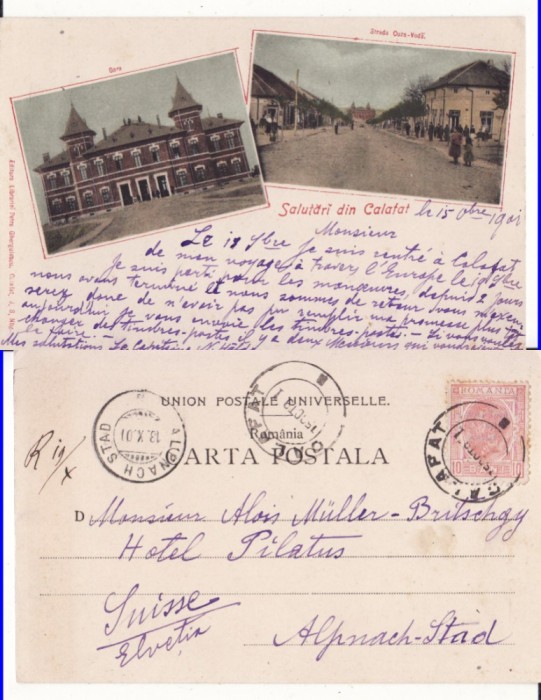 Gara
Strada Cuza-Vodă.
Salutări din Calafat le 15 8bre 1901
Monsieur
Le 12 7bre je suis rentré à Calafat
de mon voyage à travers l'Europe le 19 7bre
je suis parti pour les manœuvres, depuis 2 jours
nous avons terminé et nous sommes de retour. Vous m'excu
serez donc de n'avoir pas pu remplir ma promesse plus tôt
aujourd'hui je vous envoie les timbres-postes. Si vous voulez
changer des timbres-postes il y a deux Messieurs qui
le faire.
Mes salutations
UNION POSTALE UNIVERSELLE.
România
CARTA POSTALA
ALPNACH STAD
18.X.01
CALAFAT
ROMANIA
10 10
CALAFAT
R 19/X
D Monsieur Alois Müller-Britschgy
Hotel Pilatus
Suisse
Elveția
Alpnach-Stad